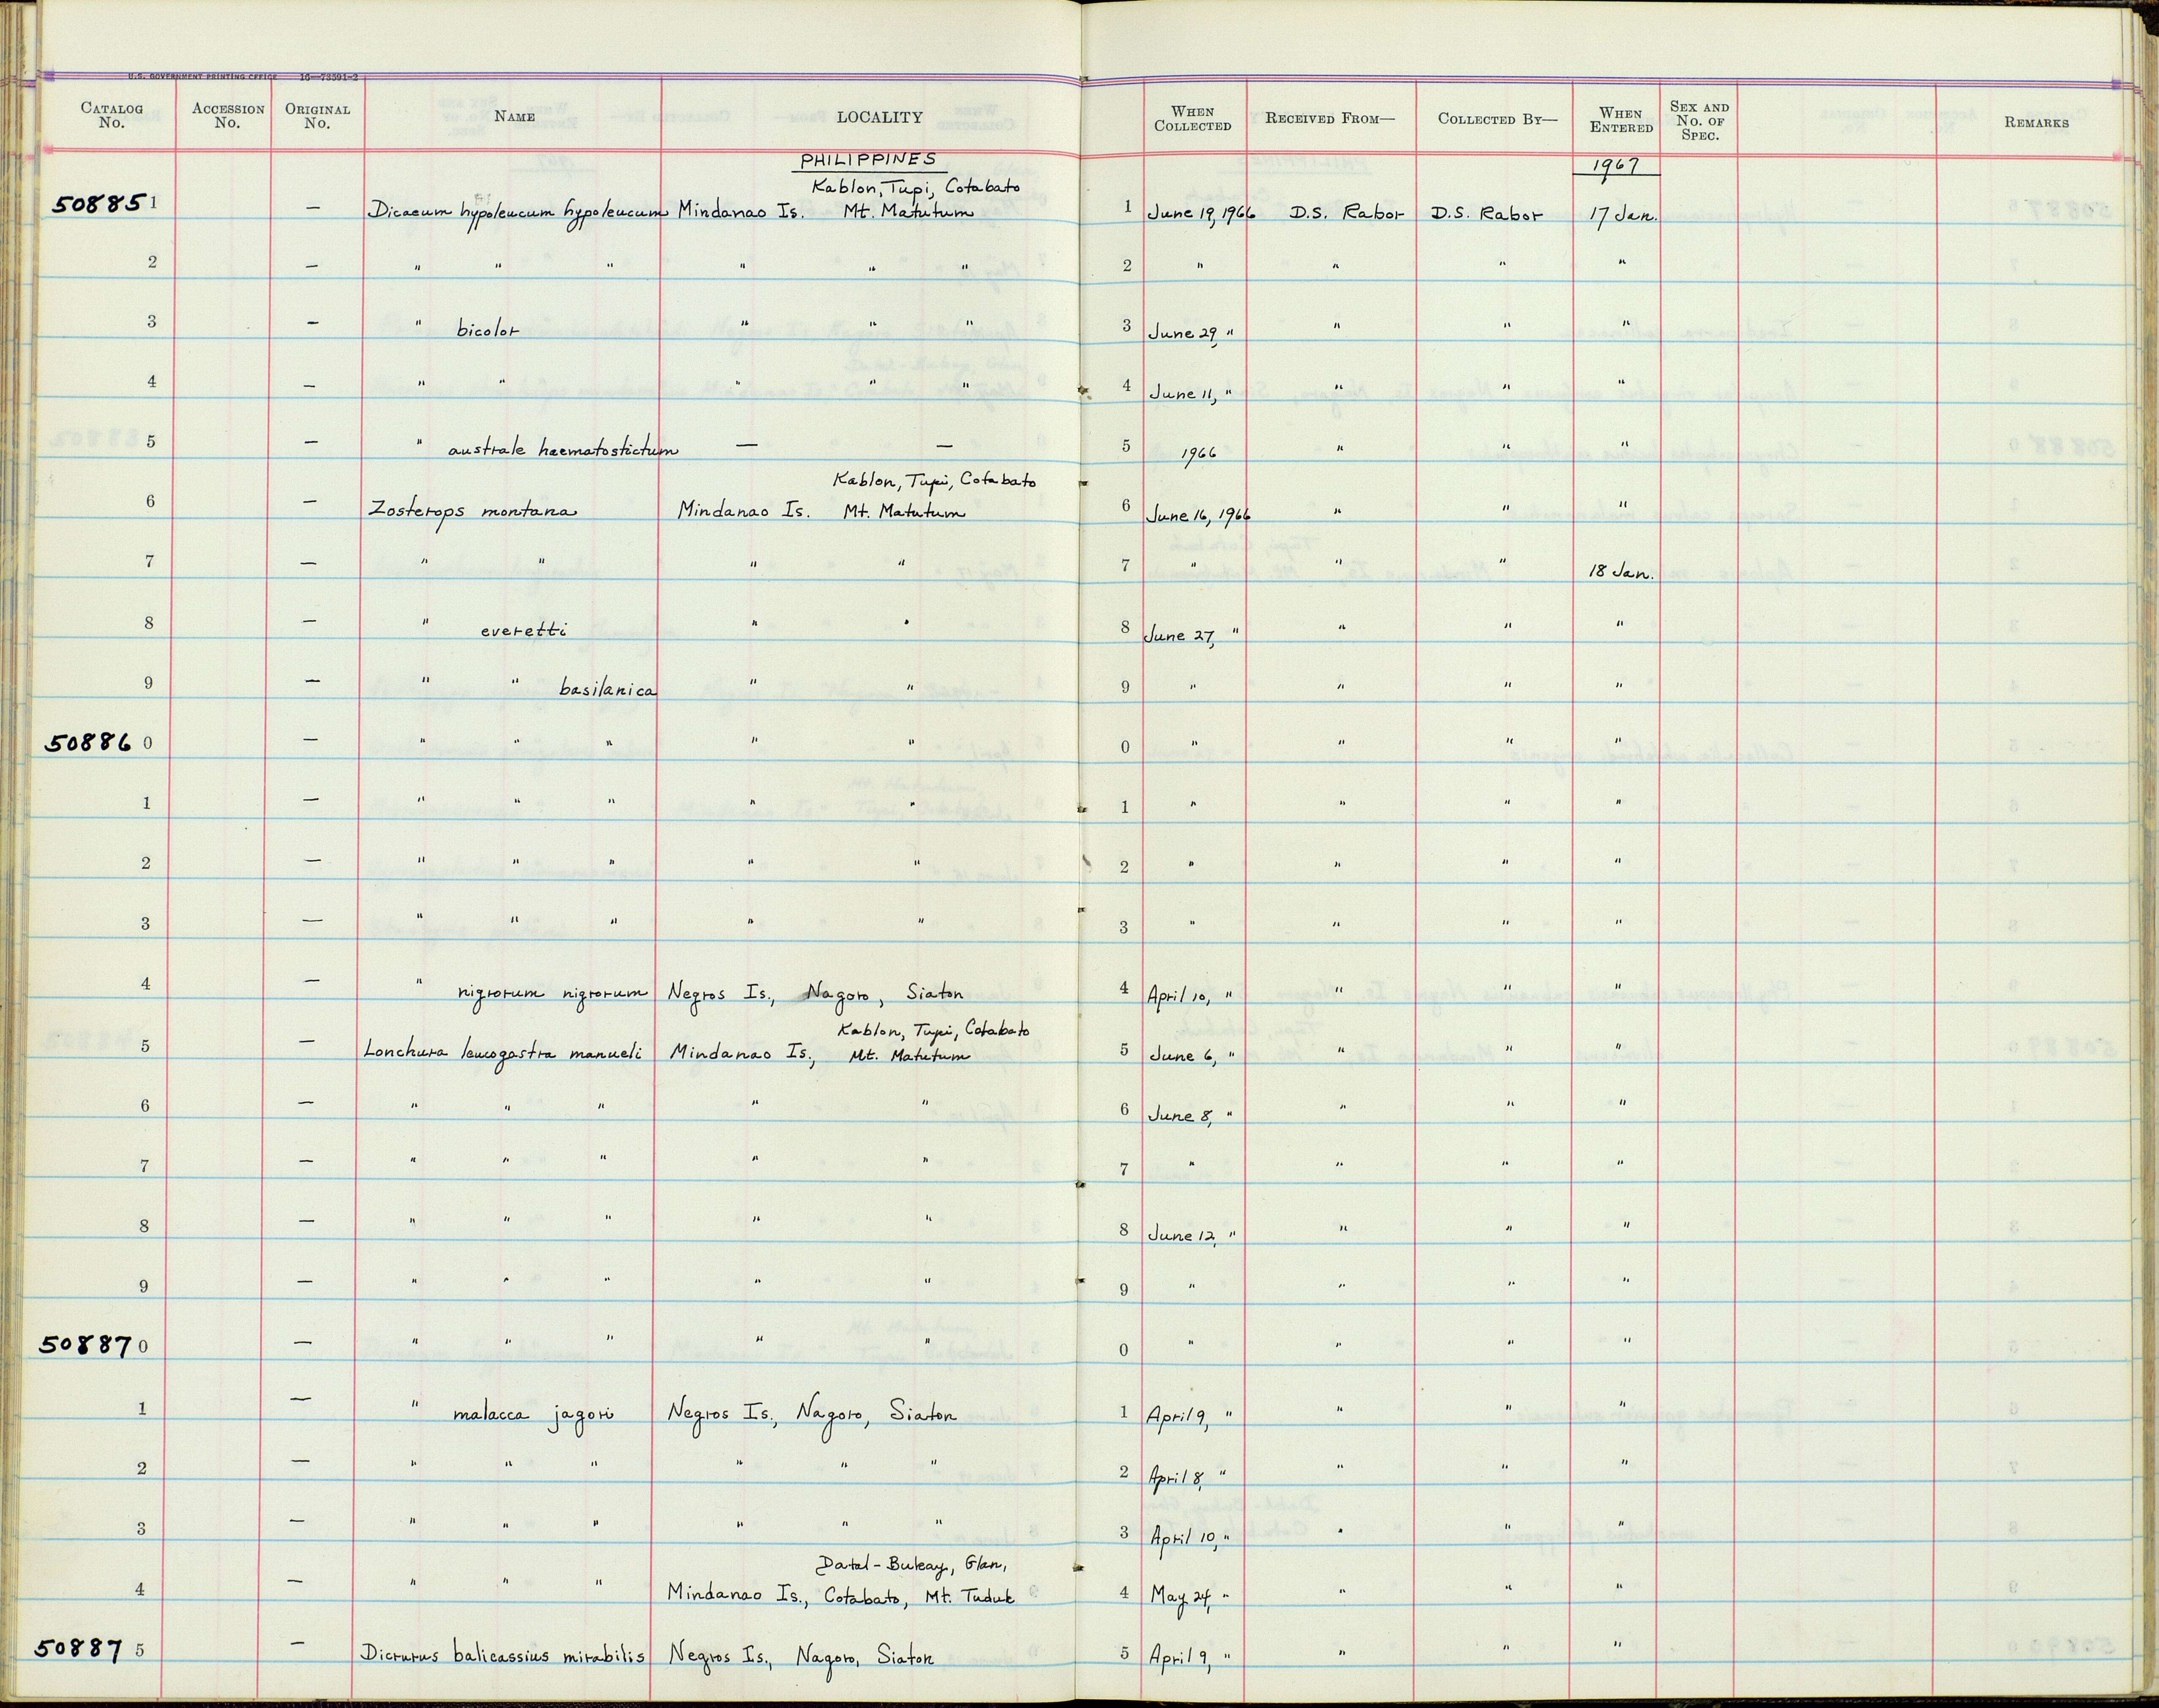 U.S. GOVERNMENT PRINTING OFFICE 16—73591-2
CATALOG No. ACCESSION No. ORIGINAL No. NAME LOCALITY WHEN COLLECTED RECEIVED FROM— COLLECTED BY— WHEN ENTERED SEX AND No. OF SPEC. REMARKS
PHILIPPINES 1967
Kablon, Tupi, Cotabato
508851 — Dicaeum hypoleucum hypoleucum Mindanao Is. Mt. Matutum 1 June 19, 1966 D.S. Rabor D.S. Rabor 17 Jan.
2 — " " " " " " 2 " " " "
3 — " bicolor " " " 3 June 29, " " " "
4 — " " " " " 4 June 11, " " " "
5 — " australe haematostictum — — 5 1966 " " "
Kablon, Tupi, Cotabato
6 — Zosterops montana Mindanao Is. Mt. Matutum 6 June 16, 1966 " " "
7 — " " " " 7 " " " 18 Jan.
8 — " everetti " " 8 June 27, " " " "
9 — " " basilanica " " 9 " " " "
508860 — " " " " " 0 " " " "
1 — " " " " " 1 " " " "
2 — " " " " " 2 " " " "
3 — " " " " " 3 " " " "
4 — " nigrorum nigrorum Negros Is., Nagoro, Siaton 4 April 10, " " " "
Kablon, Tupi, Cotabato
5 — Lonchura leucogastra manueli Mindanao Is., Mt. Matutum 5 June 6, " " " "
6 — " " " " " 6 June 8, " " " "
7 — " " " " " 7 " " " "
8 — " " " " " 8 June 12, " " " "
9 — " " " " " 9 " " " "
508870 — " " " " " 0 " " " "
1 — " malacca jagori Negros Is., Nagoro, Siaton 1 April 9, " " " "
2 — " " " " " " 2 April 8, " " " "
3 — " " " " " " 3 April 10, " " " "
Datal-Bukay, Glan,
4 — " " " Mindanao Is., Cotabato, Mt. Tuduk 4 May 24, " " " "
508875 — Dicrurus balicassius mirabilis Negros Is., Nagoro, Siaton 5 April 9, " " " "